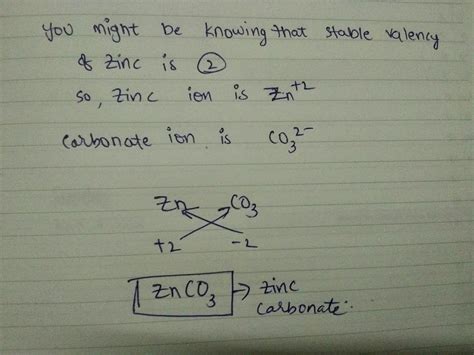 You might be knowing that stable valency
of Zinc is 2
so, Zinc ion is Zn+2
carbonate ion is CO3 2-
Zn CO3
+2 -2
ZnCO3 → zinc
carbonate.